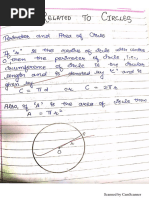 RELATED TO CIRCLES
Perimeter and Area of Circle
If "r" is the radius of circle with centre
O then the perimeter of circle, i.e.,
circumference of circle is the circular
length and is denoted by "C" and is
given by
C = πd or C = 2πr
Also if "A" is the area of circle then
A = πr²
O
r
Scanned by CamScanner